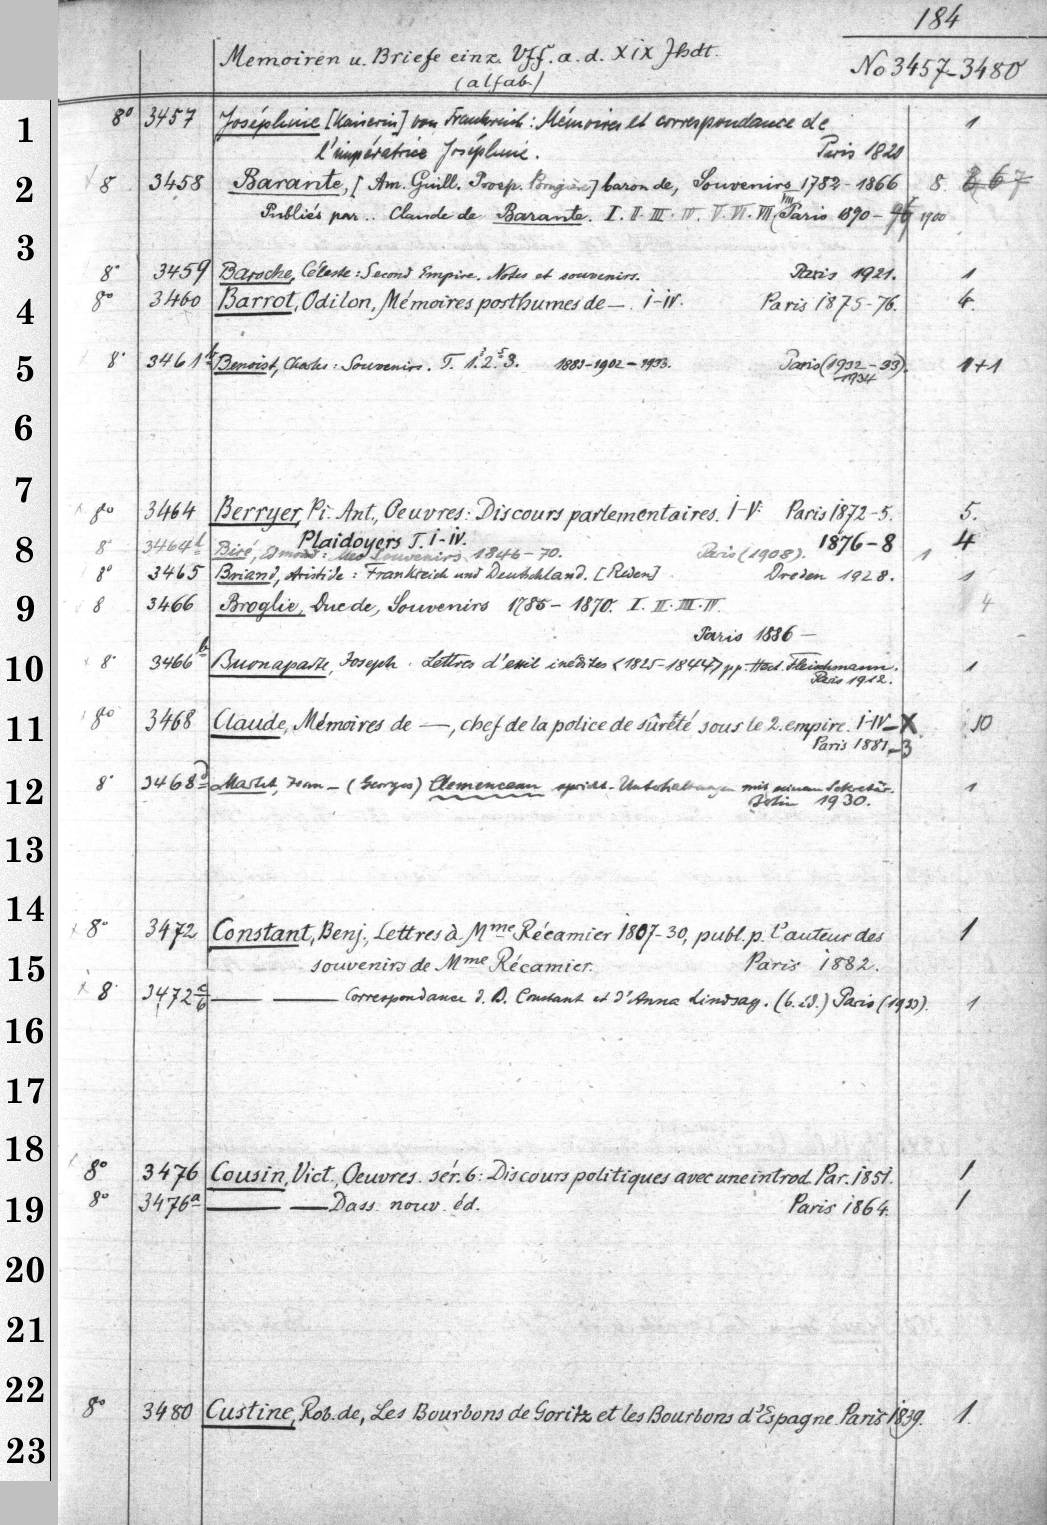 184
Memoiren u. Briefe einz. Vff. a. d. XIX Jhdt.
(alfab.)
No 3457-3480
1
8° 3457 Joséphine [Kaiserin] von Frankreich: Mémoires et correspondance de 1
l'impératrice Joséphine. Paris 1820
2
8 3458 Barante, [Am. Guill. Prosp. Brugière] baron de, Souvenirs 1782-1866 8.
Publiés par .. Claude de Barante. I. II. III. IV. V. VI. VII. VIII Paris 1890- 1900
3
8° 3459 Baroche, Céleste: Second Empire. Notes et souvenirs. Paris 1921. 1
8° 3460 Barrot, Odilon, Mémoires posthumes de —. I-IV. Paris 1875-76. 4.
4
5
8° 3461 b Benoist, Charles: Souvenirs. T. 1. 2. 3. 1883-1902-1933. Paris (1932-33). 1+1
1934
6
7
8° 3464 Berryer, Pi. Ant., Oeuvres: Discours parlementaires. I-V. Paris 1872-5. 5.
Plaidoyers T. I-IV. 1876-8 4
8
8° 3464 b Biré, Edmond: Mes Souvenirs 1846-70. Paris (1908). 1
8° 3465 Briand, Aristide: Frankreich und Deutschland. [Reden] Dresden 1928. 1
9
8 3466 Broglie, Duc de, Souvenirs 1785-1870. I. II. III. IV. 4
Paris 1886-
10
8° 3466 b Buonaparte, Joseph. Lettres d'exil inédites <1825-1844> pp. Hect. Fleischmann. 1
Paris 1912.
11
8° 3468 Claude, Mémoires de —, chef de la police de sûreté sous le 2. empire. I-IV-X 10
Paris 1881-3
12
8° 3468 a Martet, Jean - (Georges) Clemenceau spricht. Unterhaltungen mit seinem Sekretär. 1
Berlin 1930.
13
14
8° 3472 Constant, Benj., Lettres à Mme Récamier 1807-30, publ. p. l'auteur des 1
15
souvenirs de Mme Récamier. Paris 1882.
8° 3472 a/b — — Correspondance d. B. Constant et d'Anna Lindsay. (6. éd.) Paris (1933). 1
16
17
18
8° 3476 Cousin, Vict., Oeuvres. sér. 6: Discours politiques avec une introd. Par. 1851. 1
19
8° 3476a — — Dass. nouv. éd. Paris 1864. 1
20
21
22
8° 3480 Custine, Rob. de, Les Bourbons de Goritz et les Bourbons d'Espagne. Paris 1839. 1.
23